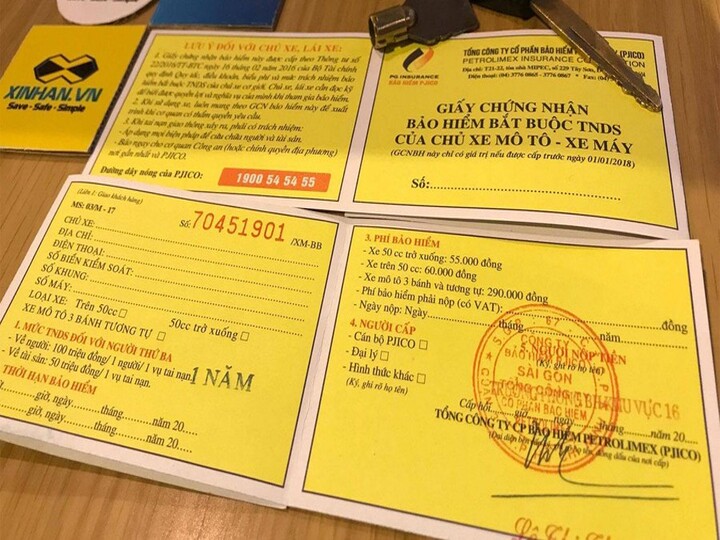 XINHAN.VN
Save - Safe - Simple
LƯU Ý ĐỐI VỚI CHỦ XE, LÁI XE:
1. Giấy chứng nhận bảo hiểm này được cấp theo Thông tư số
22/2016/TT-BTC ngày 16 tháng 02 năm 2016 của Bộ Tài chính
quy định Quy tắc, điều khoản, biểu phí và mức trách nhiệm bảo
hiểm bắt buộc TNDS của chủ xe cơ giới. Chủ xe, lái xe cần đọc kỹ
để biết được quyền lợi và nghĩa vụ của mình khi tham gia bảo hiểm.
2. Khi sử dụng xe, luôn mang theo GCN bảo hiểm này để xuất
trình khi cơ quan có thẩm quyền yêu cầu.
3. Khi tai nạn giao thông xảy ra, phải có trách nhiệm:
- Áp dụng mọi biện pháp để cứu chữa người và tài sản.
- Báo ngay cho cơ quan Công an (hoặc chính quyền địa phương)
nơi gần nhất và PJICO.
Đường dây nóng của PJICO: 1900 54 54 55
PG INSURANCE
BẢO HIỂM PJICO
TỔNG CÔNG TY CỔ PHẦN BẢO HIỂM (PJICO)
PETROLIMEX INSURANCE
Điện thoại: (04) 3776 0865 - 3776 0867
GIẤY CHỨNG NHẬN
BẢO HIỂM BẮT BUỘC TNDS
CỦA CHỦ XE MÔ TÔ - XE MÁY
(GCNBH này chỉ có giá trị nếu được cấp trước ngày 01/01/2018)
Số:
(Liên 1: Giao khách hàng)
MS: 03/M - 17
Số: 70451901 /XM-BB
CHỦ XE:
ĐỊA CHỈ:
ĐIỆN THOẠI:
SỐ BIỂN KIỂM SOÁT:
SỐ KHUNG:
SỐ MÁY:
LOẠI XE: Trên 50cc □ 50cc trở xuống □
XE MÔ TÔ 3 BÁNH TƯƠNG TỰ □
1. MỨC TNDS ĐỐI VỚI NGƯỜI THỨ BA
- Về người: 100 triệu đồng/ 1 người/ 1 vụ tai nạn
- Về tài sản: 50 triệu đồng/ 1 vụ tai nạn
1 NĂM
THỜI HẠN BẢO HIỂM
giờ, ngày tháng năm 20
giờ, ngày tháng năm 20
3. PHÍ BẢO HIỂM
- Xe 50 cc trở xuống: 55.000 đồng
- Xe trên 50 cc: 60.000 đồng
- Xe mô tô 3 bánh và tương tự: 290.000 đồng
- Phí bảo hiểm phải nộp (có VAT): đồng
- Ngày nộp: Ngày tháng năm
4. NGƯỜI CẤP
- Cán bộ PJICO □
- Đại lý □
- Hình thức khác □
(Ký, ghi rõ họ tên)
5. NGƯỜI NỘP TIỀN
(Ký, ghi rõ họ tên)
CÔNG TY
BẢO HIỂM
SÀI GÒN
TỔNG CÔNG TY
CỔ PHẦN BẢO HIỂM
KHU VỰC 16
Cấp hồi giờ, ngày tháng năm 20
TỔNG CÔNG TY CP BẢO HIỂM PETROLIMEX (PJICO)